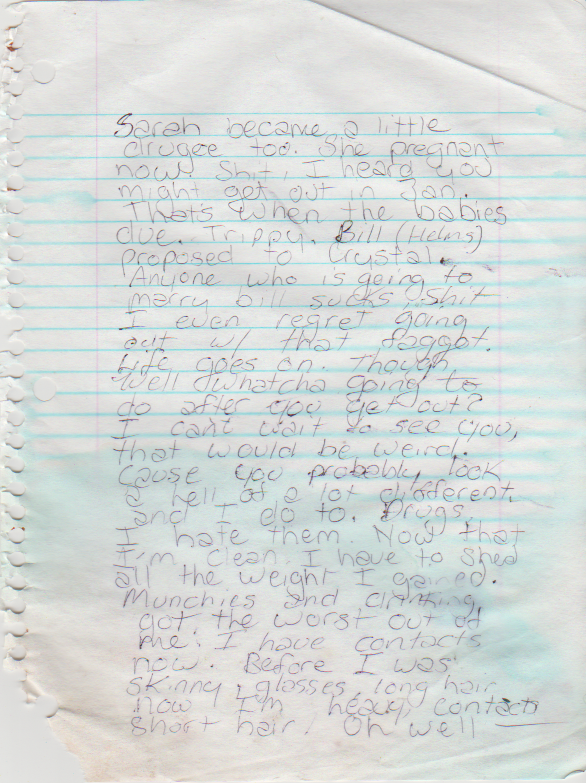 Sarah became a little
drugee too. She pregnant
now. Shit, I heard you
might get out in Jan.
That's when the babies
due. Trippy. Bill (Helms)
proposed to Crystal.
Anyone who is going to
marry bill sucks shit
I even regret going
out w/ that faggot.
Life goes on. Though
Well whatcha going to
do after you get out?
I cant wait to see you,
that would be weird.
Cause you probably look
a hell of a lot different,
and I do to. Drugs,
I hate them. Now that
I'm clean I have to shed
all the weight I gained.
Munchies and drinking
got the worst out of
me. I have contacts
now. Before I was
skinny, glasses, long hair
now I'm heavy, contacts
short hair. Oh well